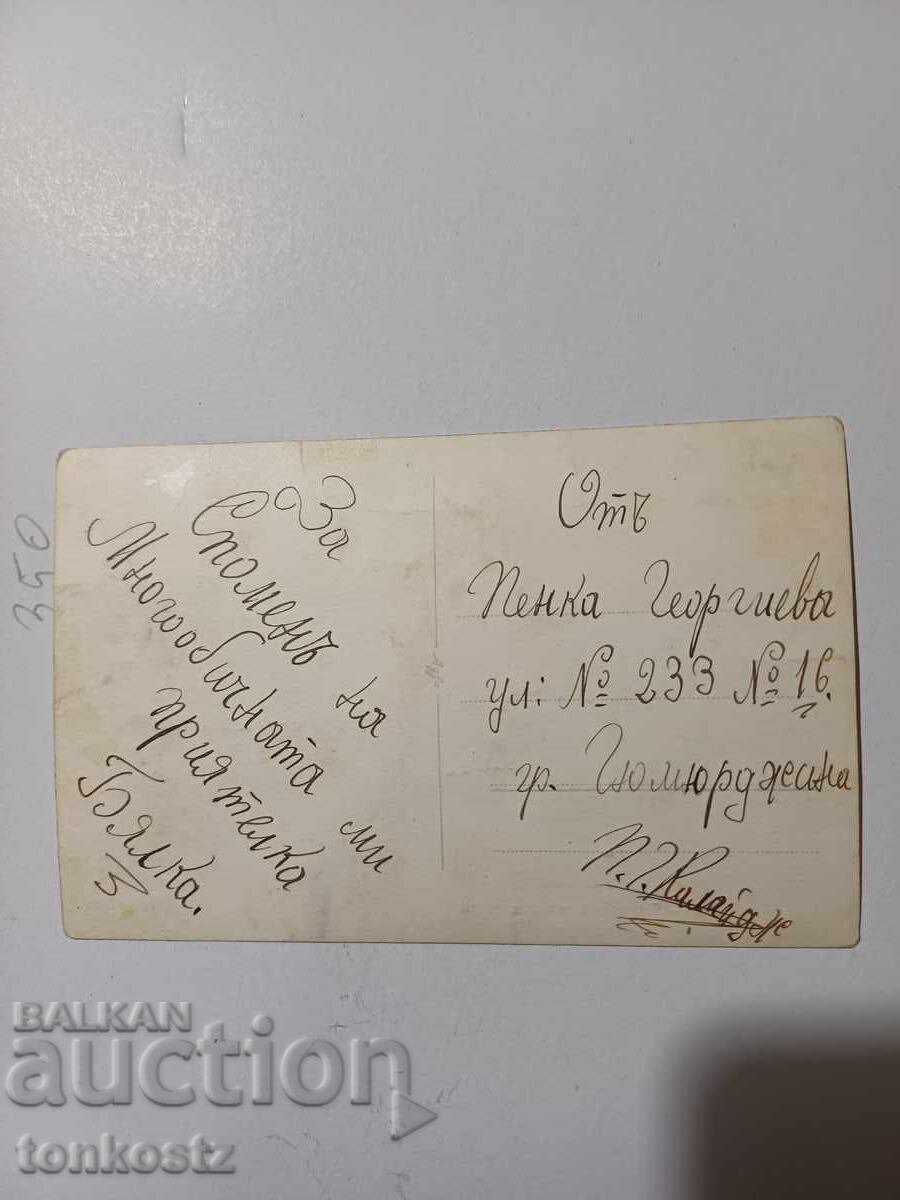 350
За
Споменъ на
Многообичната ми
приятелка
Бялка.
Отъ
Пенка Георгиева
ул: № 233 № 16.
гр. Гюмюрджина
П. Г. Калайдж
BALKAN
auction
tonkostz